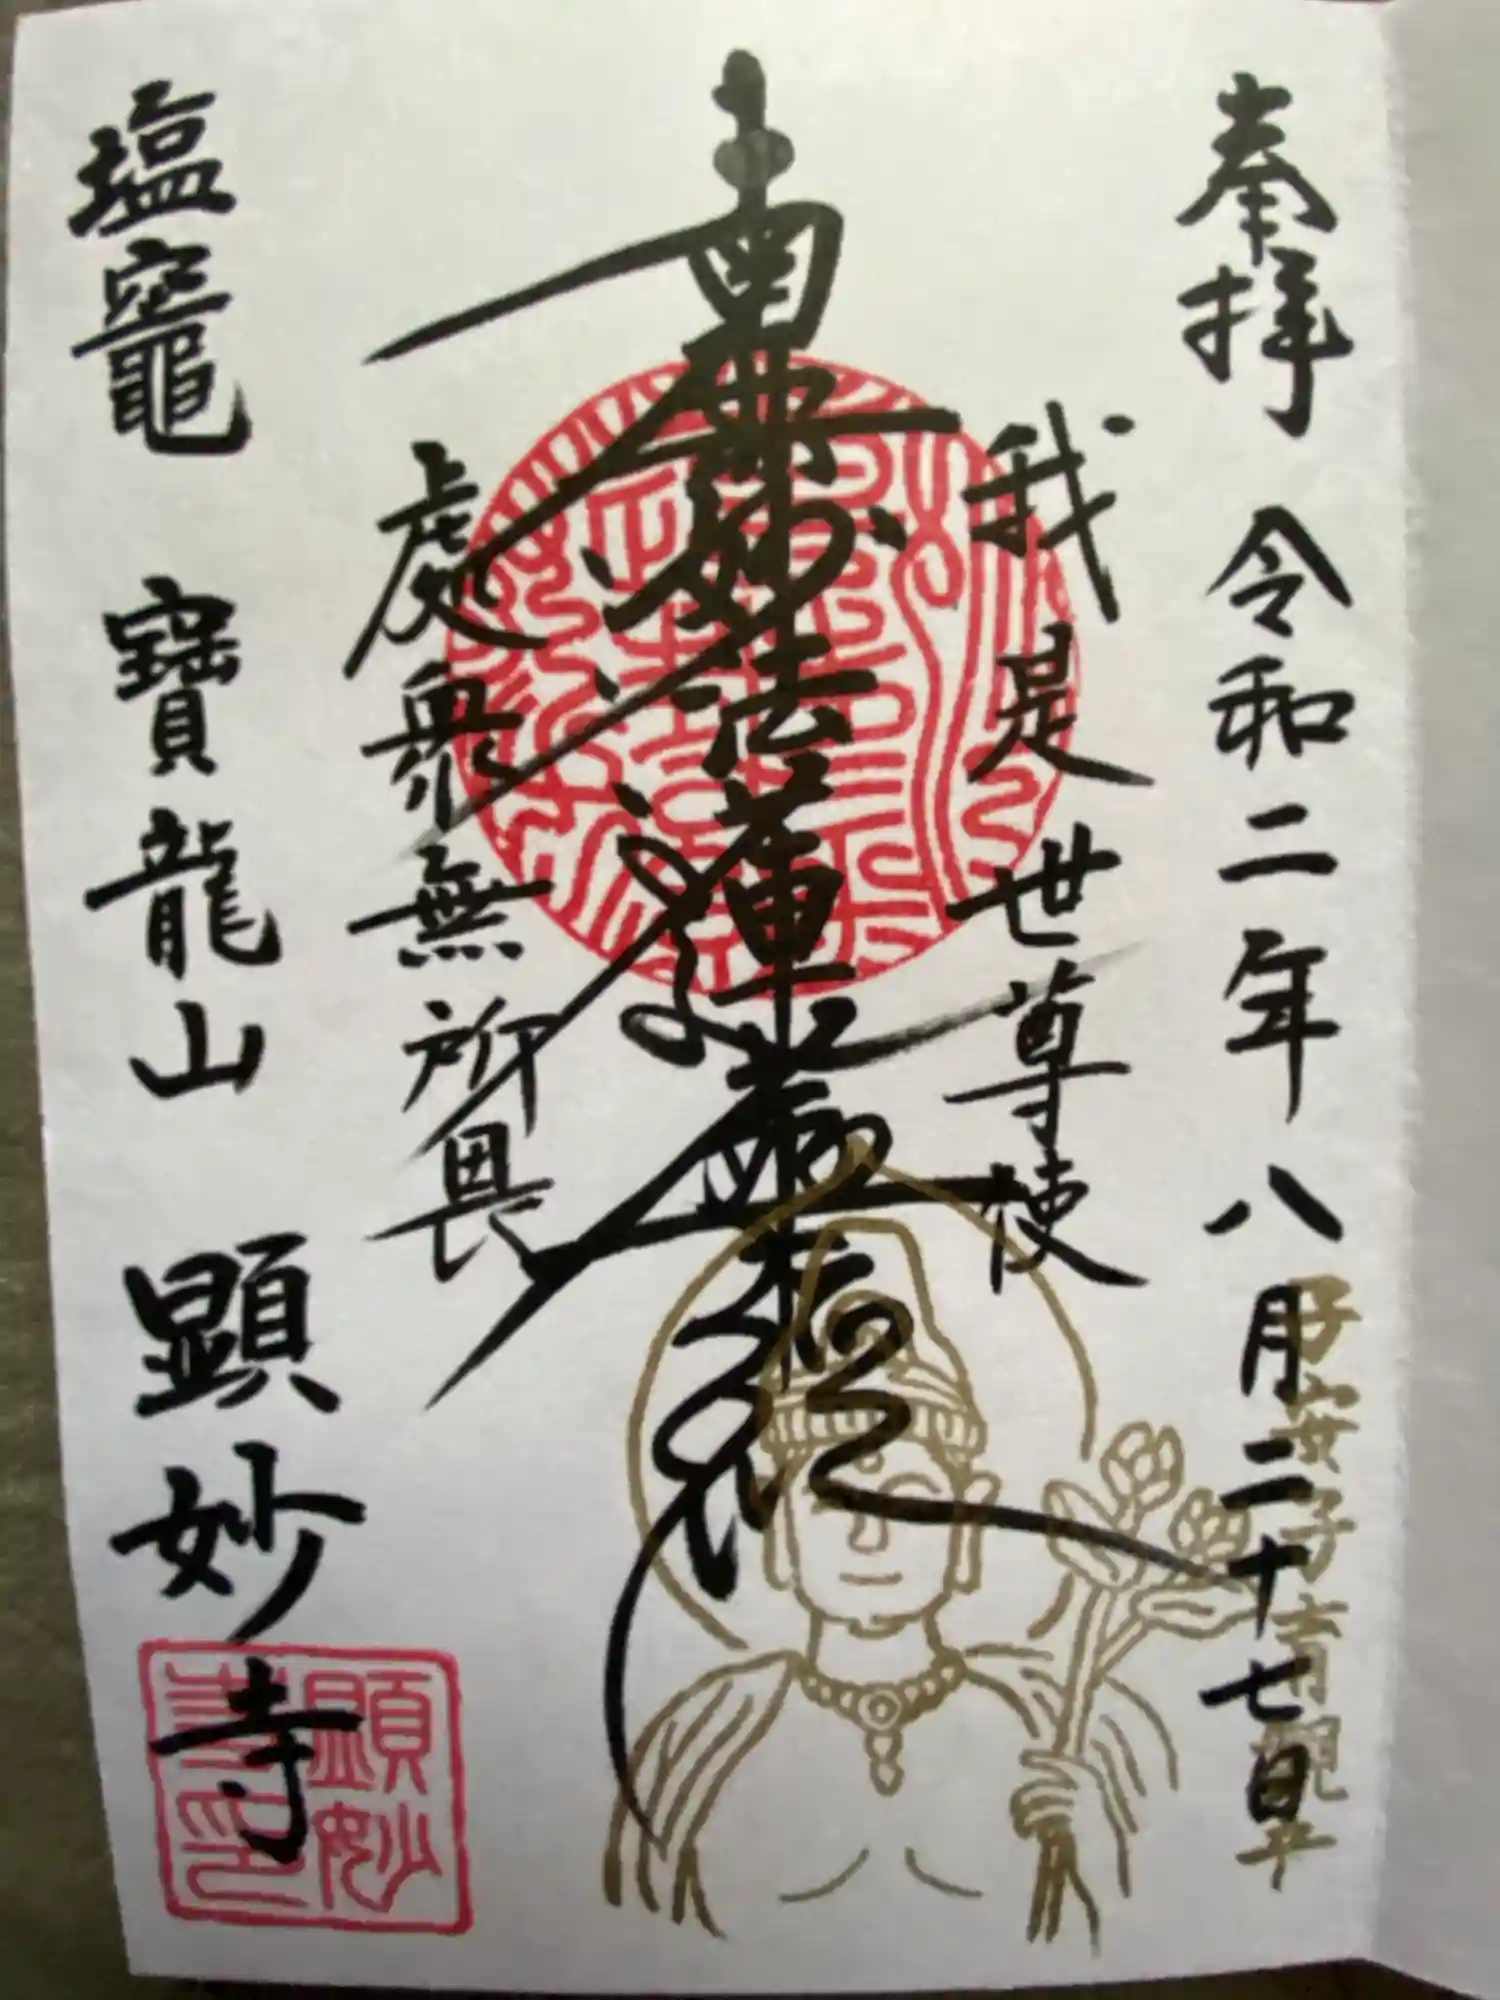 奉拝 令和二年 八月二十七日
子安子育観
我是世尊使
南無妙法蓮華経
處衆無所畏
塩竈 寶龍山 顕妙寺
顕妙
寺印